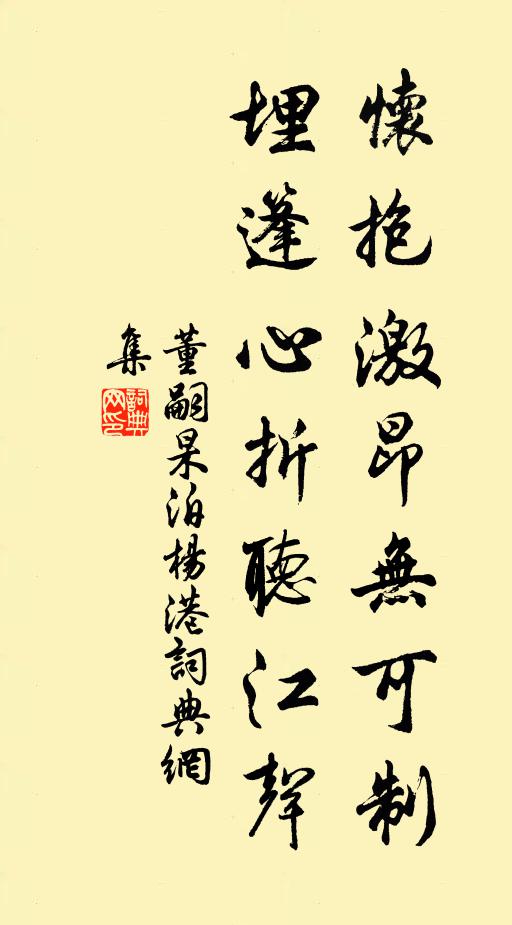 懷抱激昂無可制
埋蓬心折聽江聲
董嗣杲泊楊港詞典網
集
詞典
网印